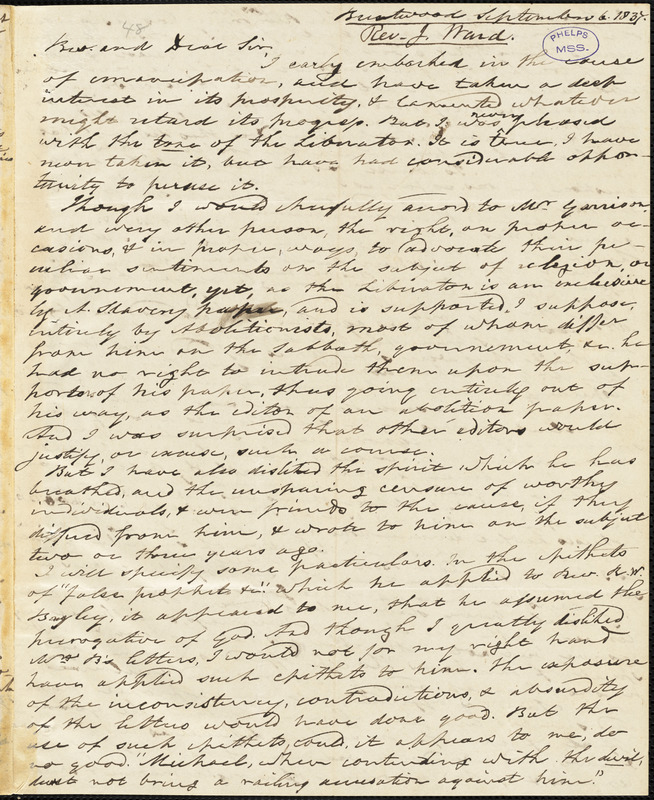 48
Brentwood September 6. 1837.
Rev. J. Ward.
PHELPS
MSS.
Rev. and Dear Sir,
I early embarked in the cause
of emancipation, and have taken a deep
interest in its prosperity, & lamented whatever
might retard its progress. But, I was never pleased
with the tone of the Liberator. It is true, I have
never taken it, but have had considerable oppor-
tunity to peruse it.
Though I would cheerfully accord to Mr Garrison,
and every other person, the right, on proper oc-
casions, & in proper ways, to advocate their pe-
culiar sentiments on the subject of religion, or
government, yet, as the Liberator is an exclusive-
ly A. Slavery paper, and is supported, I suppose,
entirely by Abolitionists, most of whom differ
from him on the Sabbath, government, &c. he
had no right to intrude them upon the sup-
porters of his paper, thus going entirely out of
his way, as the editor of an abolition paper.
And I was surprised that other editors would
justify, or excuse, such a course.
But I have also disliked the spirit which he has
breathed, and the unsparing censure of worthy
individuals, & even friends to the cause, if they
differed from him, & wrote to him on the subject
two or three years ago.
I will specify some particulars. In the epithets
of "false prophet &c." which he applied to Rev. R. W.
Bayley, it appeared to me, that he assumed the
prerogative of God. And though I greatly disliked
Mr. B's letters, I would not for my right hand
have applied such epithets to him. The exposure
of the inconsistency, contradictions, & absurdity
of the letters would have done good. But the
use of such epithets could, it appears to me, do
no good. "Michael, when contending with the devil,
durst not bring a railing accusation against him."